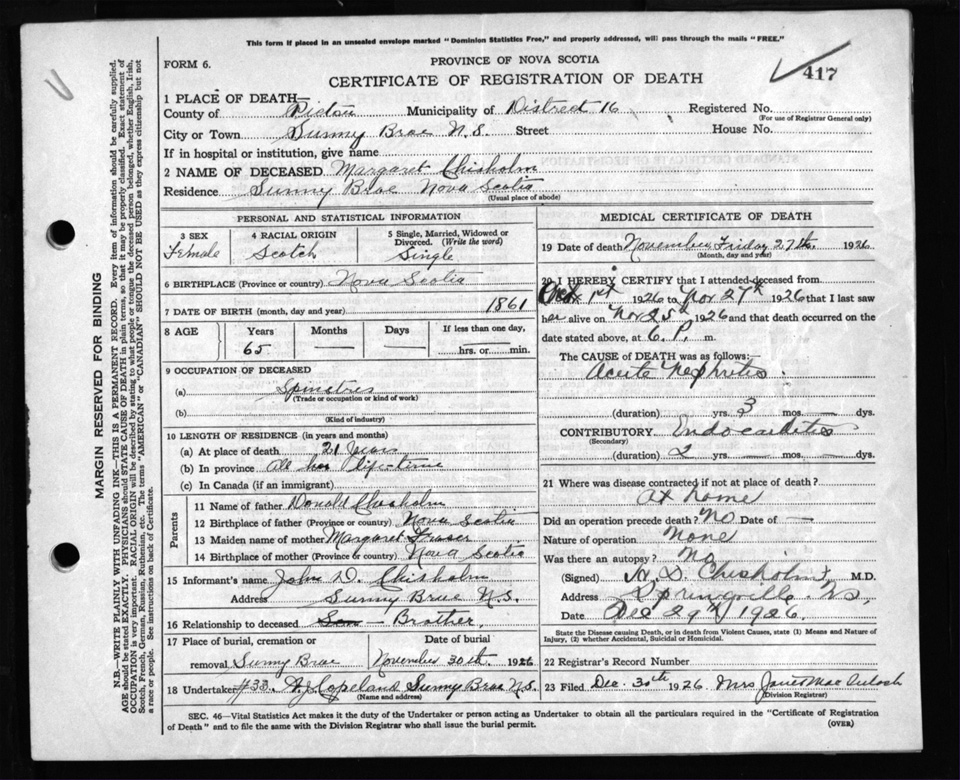 This form if placed in an unsealed envelope marked "Dominion Statistics Free," and properly addressed, will pass through the mails "FREE."
FORM 6.
PROVINCE OF NOVA SCOTIA
CERTIFICATE OF REGISTRATION OF DEATH
417
1 PLACE OF DEATH—
County of Pictou Municipality of District 16 Registered No.
(For use of Registrar General only)
City or Town Sunny Brae N.S. Street House No.
If in hospital or institution, give name
2 NAME OF DECEASED Margaret Chisholm
Residence Sunny Brae Nova Scotia
(Usual place of abode)
PERSONAL AND STATISTICAL INFORMATION
3 SEX Female
4 RACIAL ORIGIN Scotch
5 Single, Married, Widowed or Divorced. (Write the word) Single
6 BIRTHPLACE (Province or country) Nova Scotia
7 DATE OF BIRTH (month, day and year) 1861
8 AGE Years Months Days If less than one day,
65 hrs. or min.
9 OCCUPATION OF DECEASED
(a) Spinstris
(Trade or occupation or kind of work)
(b)
(Kind of industry)
10 LENGTH OF RESIDENCE (in years and months)
(a) At place of death 21 Years
(b) In province all her life-time
(c) In Canada (if an immigrant)
Parents
11 Name of father Donald Chisholm
12 Birthplace of father (Province or country) Nova Scotia
13 Maiden name of mother Margaret Fraser
14 Birthplace of mother (Province or country) Nova Scotia
15 Informant's name John D. Chisholm
Address Sunny Brae N.S.
16 Relationship to deceased Son – Brother.
17 Place of burial, cremation or Date of burial
removal Sunny Brae November 30th. 1926
18 Undertaker #33. A.J. Copeland Sunny Brae N.S.
(Name and address)
MEDICAL CERTIFICATE OF DEATH
19 Date of death November Friday 27th. 1926
(Month, day and year)
20 I HEREBY CERTIFY that I attended deceased from
Oct 1st 1926 to Nov. 27th 1926 that I last saw
her alive on Nov 25th 1926 and that death occurred on the
date stated above, at 6. P. m.
The CAUSE OF DEATH was as follows:—
Acute Nephritis.
(duration) yrs. 3 mos. — dys.
CONTRIBUTORY Endocarditis
(Secondary)
(duration) 2 yrs. — mos. — dys.
21 Where was disease contracted if not at place of death?
At home
Did an operation precede death? No Date of —
Nature of operation None
Was there an autopsy? No
(Signed) Chisholm, M.D.
Address Springville N.S.
Date Dec 29th 1926.
State the Disease causing Death, or in death from Violent Causes, state (1) Means and Nature of
Injury, (2) whether Accidental, Suicidal or Homicidal.
22 Registrar's Record Number
23 Filed Dec. 30th 1926 Mrs Janet MacCuloch
(Division Registrar)
SEC. 46—Vital Statistics Act makes it the duty of the Undertaker or person acting as Undertaker to obtain all the particulars required in the "Certificate of Registration
of Death" and to file the same with the Division Registrar who shall issue the burial permit.
(OVER)
MARGIN RESERVED FOR BINDING
N.B.—WRITE PLAINLY WITH UNFADING INK—THIS IS A PERMANENT RECORD. Every item of information should be carefully supplied.
AGE should be stated EXACTLY. PHYSICIANS should STATE CAUSE OF DEATH in plain terms, so that it may be properly classified. Exact statement of
OCCUPATION is very important. RACIAL ORIGIN will be described by stating to what people or tongue the deceased person belonged, whether English, Irish,
Scotch, French, German, Russian, Ruthenian, etc. The terms "AMERICAN" or "CANADIAN" SHOULD NOT BE USED as they express citizenship but not
a race or people. See instructions on back of Certificate.